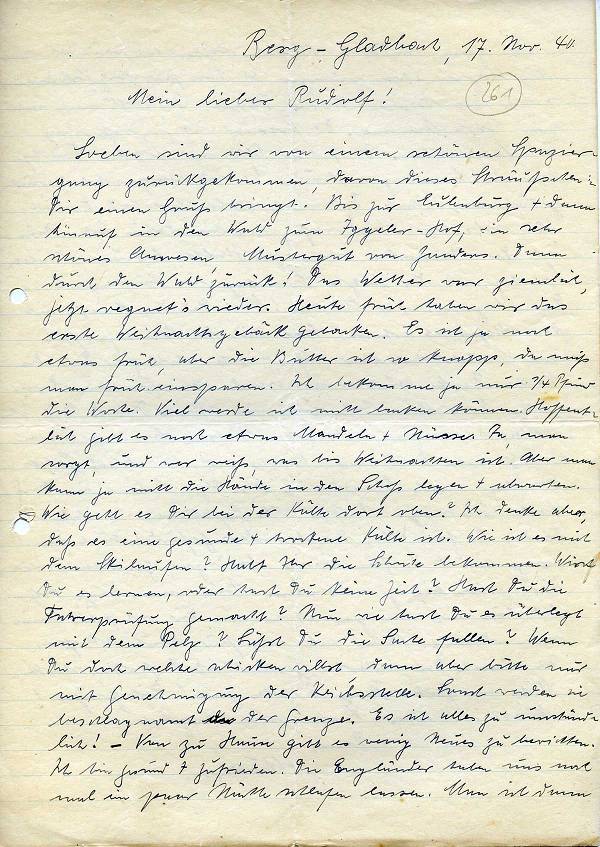 Berg-Gladbach, 17. Nov. 40.
261
Mein lieber Rudolf!
Soeben sind wir von einem schönen Spazier-
gang zurückgekommen, davon dieses Sträußchen
Dir einen Gruß bringt. Bis zur Eulenburg + dann
hinauf in den Wald zum Iggeler-Hof, ein sehr
schönes Anwesen, Mustergut von Zanders. Dann
durch den Wald zurück! Das Wetter war ziemlich,
jetzt regnet's wieder. Heute früh haben wir das
erste Weihnachtsgebäck gebacken. Es ist ja noch
etwas früh, aber die Butter ist so knapp, da muß
man früh einsparen. Ich bekomme ja nur 3/4 Pfund
die Woche. Viel werde ich nicht backen können. Hoffent-
lich gibt es noch etwas Mandeln + Nüsse. Ja, man
sorgt, und wer weiß, was bis Weihnachten ist. Aber man
kann ja nicht die Hände in den Schoß legen + abwarten.
Wie geht es Dir bei der Kälte dort oben? Ich denke aber,
daß es eine gesunde + trockene Kälte ist. Wie ist es mit
dem Skilaufen? Habt Ihr die Schuhe bekommen. Wirst
Du es lernen, oder hast Du keine Zeit? Hast Du die
Fahrerprüfung gemacht? Nun wie hast Du es überlegt
mit dem Pelz? Läßt Du die Sache fallen? Wenn
Du doch welche schicken willst dann aber bitte nur
mit Genehmigung der Reichsstelle. Sonst werden sie
beschlagnamt der Grenze. Es ist alles zu umständ-
lich! - Von zu Hause gibt es wenig Neues zu berichten.
Ich bin gesund + zufrieden. Die Engländer haben uns noch
mal ein paar Nächte schlafen lassen. Man ist dann